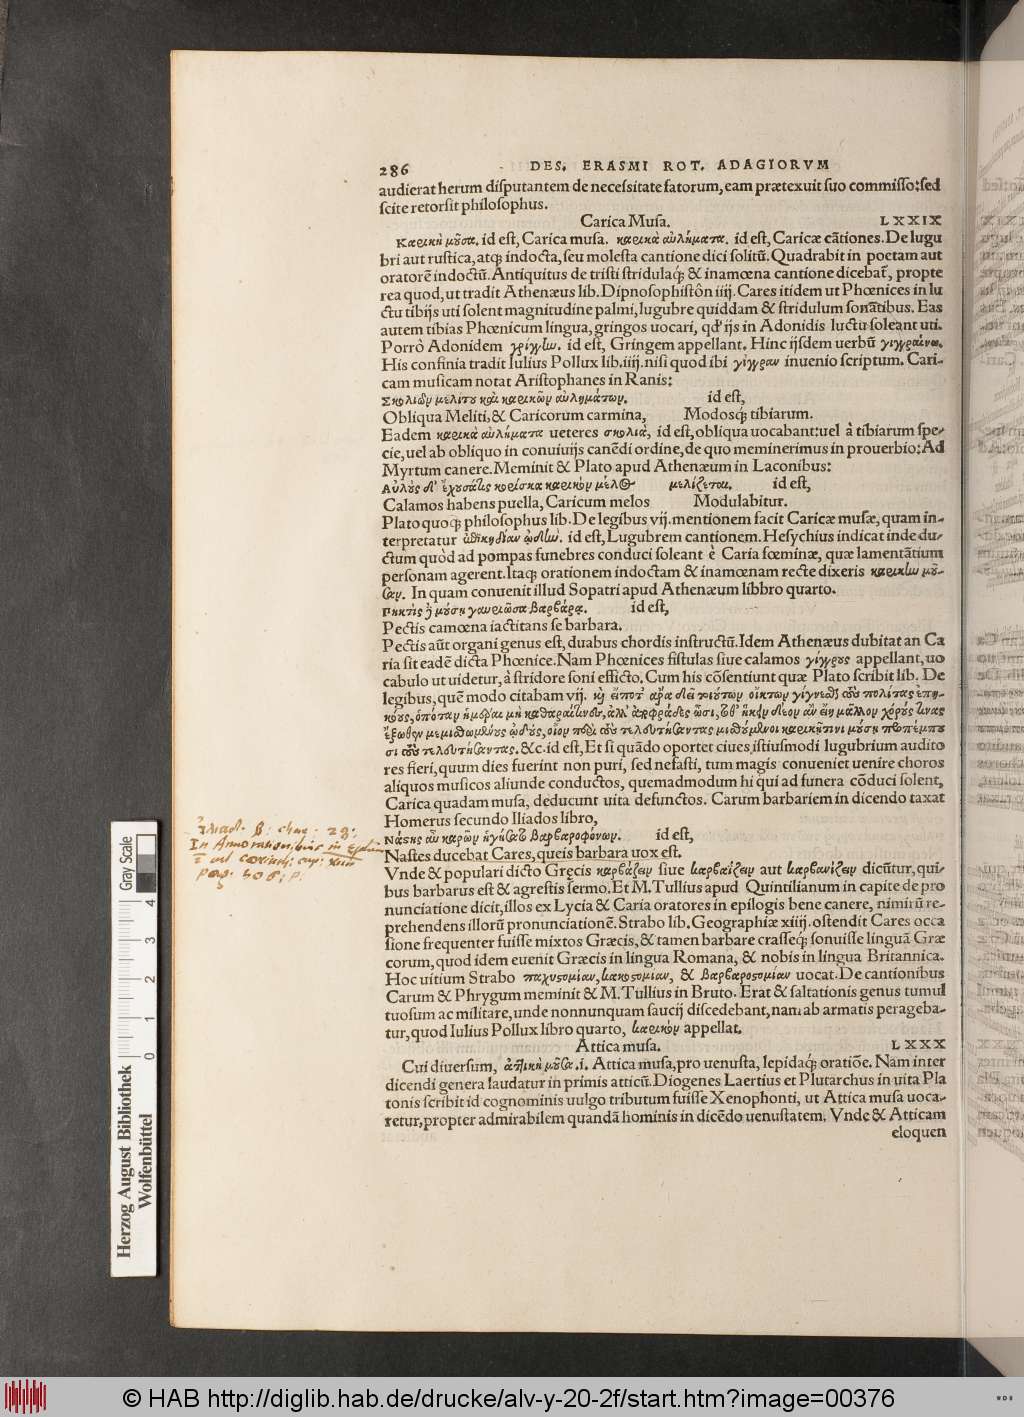 286 DES. ERASMI ROT. ADAGIORVM
audierat herum disputantem de necessitate fatorum, eam prætexuit suo commisso: sed
scite retorsit philosophus.
Carica Musa. LXXIX
Καρικὴ μοῦσα. id est, Carica musa. καρικὰ αὐλήματα. id est, Caricæ cātiones. De lugu
bri aut rustica, atq; indocta, seu molesta cantione dici solitū. Quadrabit in poetam aut
oratorē indoctū. Antiquitus de tristi stridulaq́; & inamœna cantione dicebat̃, propte
rea quod, ut tradit Athenæus lib. Dipnosophistôn iiij. Cares itidem ut Phœnices in lu
ctu tibijs uti solent magnitudine palmi, lugubre quiddam & stridulum sonātibus. Eas
autem tibias Phœnicum lingua, gringos uocari, qd' ijs in Adonidis luctu soleant uti.
Porrò Adonidem γρίγγην. id est, Gringem appellant. Hinc ijsdem uerbū γιγγραίνω.
His confinia tradit Iulius Pollux lib. iiij. nisi quod ibi γίγγραν inuenio scriptum. Cari-
cam musicam notat Aristophanes in Ranis:
Σκολιῶν μελίτου καὶ καρικῶν αὐλημάτων. id est,
Obliqua Meliti, & Caricorum carmina, Modosq́; tibiarum.
Eadem καρικὰ αὐλήματα ueteres σκολιά, id est, obliqua uocabant: uel à tibiarum spe-
cie, uel ab obliquo in conuiuijs canēdi ordine, de quo meminerimus in prouerbio: Ad
Myrtum canere. Meminit & Plato apud Athenæum in Laconibus:
Αὐλοὺς δ' ἔχουσά τις κορίσκα καρικὸν μέλος μελίζεται. id est,
Calamos habens puella, Caricum melos Modulabitur.
Plato quoq; philosophus lib. De legibus vij. mentionem facit Caricæ musæ, quam in-
terpretatur ἐπικηδίαν ᾠδὴν. id est, Lugubrem cantionem. Hesychius indicat inde du-
ctum quòd ad pompas funebres conduci soleant è Caria fœminæ, quæ lamentātium
personam agerent. Itaq; orationem indoctam & inamœnam recte dixeris καρικὴν μοῦ-
σαν. In quam conuenit illud Sopatri apud Athenæum libbro quarto.
Πηκτὶς ἢ μούσῃ γαυριῶσα βαρβάρῳ. id est,
Pectis camœna iactitans se barbara.
Pectis aūt organi genus est, duabus chordis instructū. Idem Athenæus dubitat an Ca
ria sit eadē dicta Phœnice. Nam Phœnices fistulas siue calamos γίγγρους appellant, uo
cabulo ut uidetur, à stridore soni efficto. Cum his cōsentiunt quæ Plato scribit lib. De
legibus, quē modo citabam vij. καὶ εἴποτ' ἄρα δεῖ τοιούτων οἴκτων γίγνεσθαι τοὺς πολίτας ἐπη-
κόους, ὁπόταν ἡμέραι μὴ καθαραί τινες, ἀλλ' ἀποφράδες ὦσι, τόθ' ἥκειν δέον ἂν εἴη μᾶλλον χόρους τινας
ἔξωθεν μεμισθωμένους ᾠδοὺς, οἷον περὶ τοὺς τελευτήσαντας μισθούμενοι καρικῇ τινι μούσῃ προπέμπου
σι τοὺς τελευτήσαντας. &c. id est, Et si quādo oportet ciues, istiusmodi lugubrium audito
res fieri, quum dies fuerint non puri, sed nefasti, tum magis conueniet uenire choros
aliquos musicos aliunde conductos, quemadmodum hi qui ad funera cōduci solent,
Carica quadam musa, deducunt uita defunctos. Carum barbariem in dicendo taxat
Homerus secundo Iliados libro,
Νάστης αὖ καρῶν ἡγήσατο βαρβαροφώνων. id est,
Nastes ducebat Cares, queis barbara uox est.
Vnde & populari dicto Gręcis καρβάζειν siue καρβαΐζειν aut καρβανίζειν dicūtur, qui-
bus barbarus est & agrestis sermo. Et M. Tullius apud Quintilianum in capite de pro
nunciatione dicit, illos ex Lycia & Caria oratores in epilogis bene canere, nimirū re-
prehendens illorū pronunciationē. Strabo lib. Geographiæ xiiij. ostendit Cares occa
sione frequenter fuisse mixtos Græcis, & tamen barbare crasseq́; sonuisse linguā Græ
corum, quod idem euenit Græcis in lingua Romana, & nobis in lingua Britannica.
Hoc uitium Strabo παχυστομίαν, κακοστομίαν, & βαρβαροστομίαν uocat. De cantionibus
Carum & Phrygum meminit & M. Tullius in Bruto. Erat & saltationis genus tumul
tuosum ac militare, unde nonnunquam saucij discedebant, nam ab armatis perageba-
tur, quod Iulius Pollux libro quarto, καρικὸν appellat.
Attica musa. LXXX
Cui diuersum, ἀττικὴ μοῦσα. i. Attica musa, pro uenusta, lepidaq́; oratiōe. Nam inter
dicendi genera laudatur in primis atticū. Diogenes Laertius et Plutarchus in uita Pla
tonis scribit id cognominis uulgo tributum fuisse Xenophonti, ut Attica musa uoca-
retur, propter admirabilem quandā hominis in dicēdo uenustatem. Vnde & Atticam
eloquen
Iliad. β: char. 28:
In Annotationibus in
pag. 508;
Gray Scale
4
3
2
1
0
Herzog August Bibliothek
Wolfenbüttel
© HAB http://diglib.hab.de/drucke/alv-y-20-2f/start.htm?image=00376